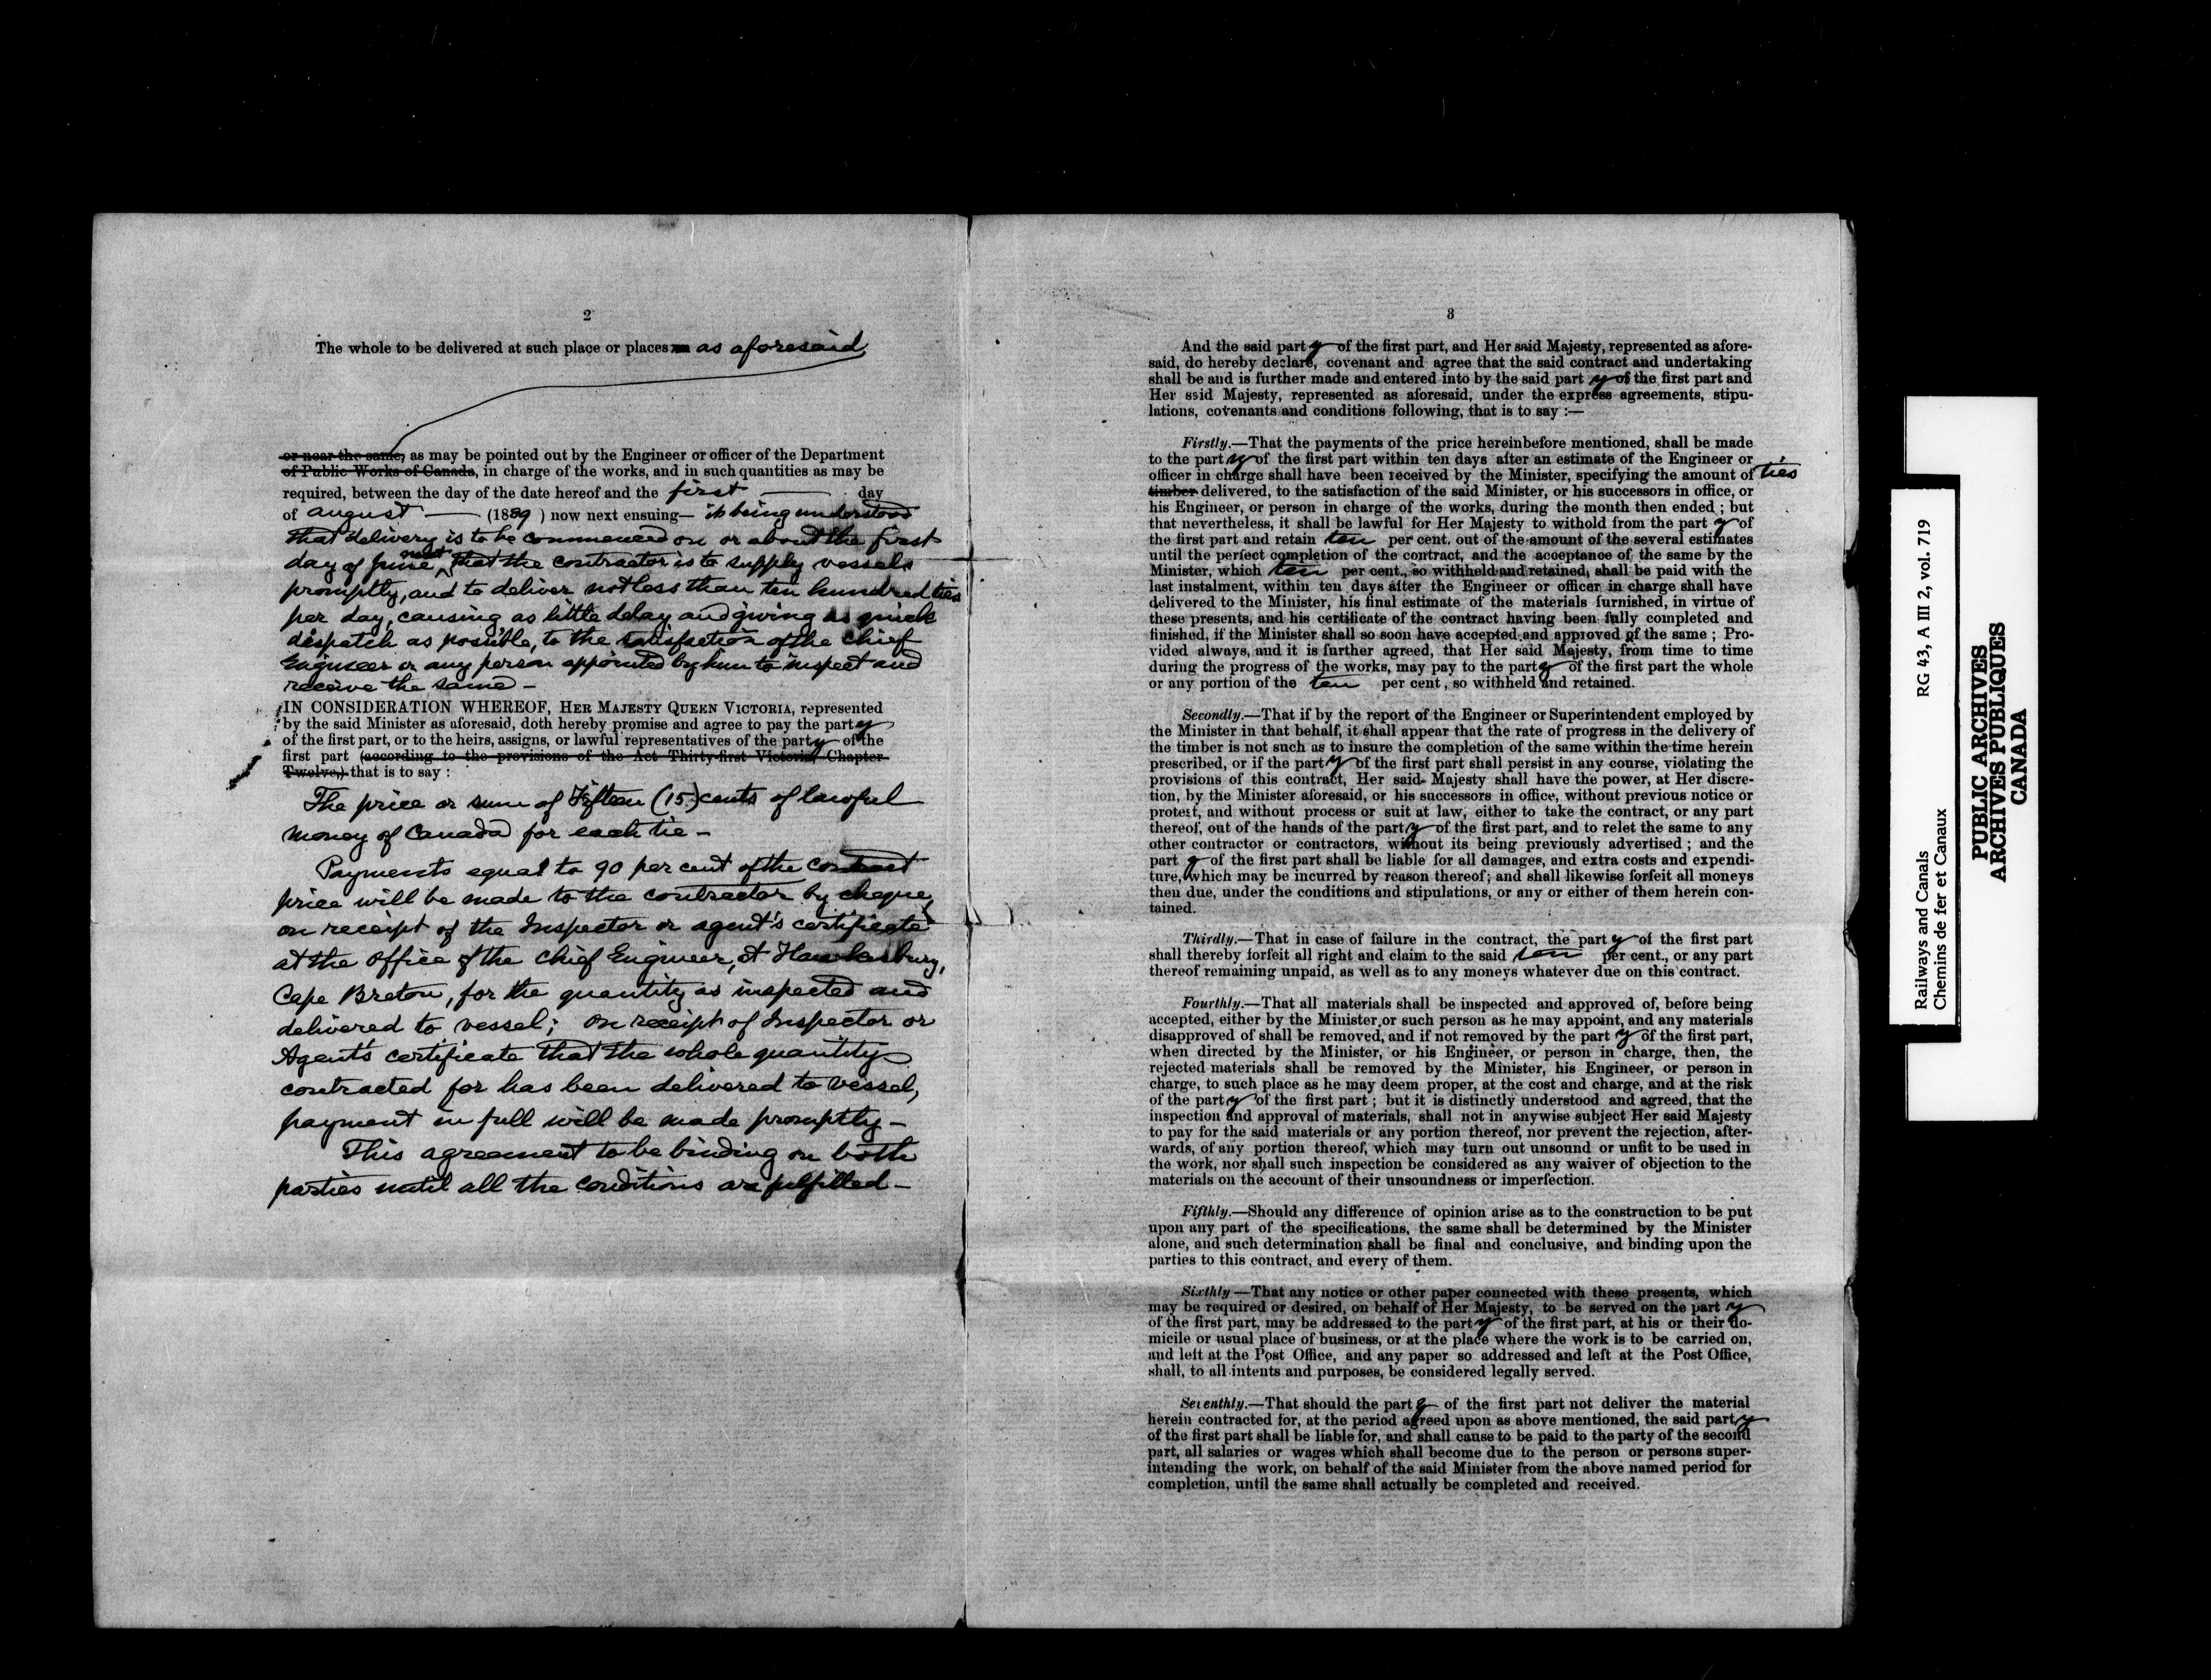 2
The whole to be delivered at such place or places as aforesaid
or near the same, as may be pointed out by the Engineer or officer of the Department
of Public Works of Canada, in charge of the works, and in such quantities as may be
required, between the day of the date hereof and the first day
of august (1889 ) now next ensuing— it being understood
that delivery is to be commenced on or about the first
day of June next, that the contractor is to supply vessels
promptly, and to deliver not less than ten hundred ties
per day, causing as little delay and giving as quick
despatch as possible, to the satisfaction of the Chief
Engineer or any person appointed by him to inspect and
receive the same –
IN CONSIDERATION WHEREOF, HER MAJESTY QUEEN VICTORIA, represented
by the said Minister as aforesaid, doth hereby promise and agree to pay the party
of the first part, or to the heirs, assigns, or lawful representatives of the party of the
first part (according to the provisions of the Act Thirty-first Victoria, Chapter
Twelve,) that is to say :
The price or sum of Fifteen (15) cents of lawful
money of Canada for each tie –
Payments equal to 90 per cent of the contract
price will be made to the contractor by cheque,
on receipt of the Inspector or agent's certificate
at the office of the Chief Engineer, at Hawkesbury,
Cape Breton, for the quantity as inspected and
delivered to vessel; on receipt of Inspector or
Agent's certificate that the whole quantity
contracted for has been delivered to vessel,
payment in full will be made promptly –
This agreement to be binding on both
parties until all the conditions are fulfilled –
3
And the said party of the first part, and Her said Majesty, represented as afore-
said, do hereby declare, covenant and agree that the said contract and undertaking
shall be and is further made and entered into by the said part y of the first part and
Her said Majesty, represented as aforesaid, under the express agreements, stipu-
lations, covenants and conditions following, that is to say :—
Firstly.—That the payments of the price hereinbefore mentioned, shall be made
to the party of the first part within ten days after an estimate of the Engineer or
officer in charge shall have been received by the Minister, specifying the amount of ties
timber delivered, to the satisfaction of the said Minister, or his successors in office, or
his Engineer, or person in charge of the works, during the month then ended ; but
that nevertheless, it shall be lawful for Her Majesty to withold from the part y of
the first part and retain ten per cent. out of the amount of the several estimates
until the perfect completion of the contract, and the acceptance of the same by the
Minister, which ten per cent., so withheld and retained, shall be paid with the
last instalment, within ten days after the Engineer or officer in charge shall have
delivered to the Minister, his final estimate of the materials furnished, in virtue of
these presents, and his certificate of the contract having been fully completed and
finished, if the Minister shall so soon have accepted and approved of the same ; Pro-
vided always, and it is further agreed, that Her said Majesty, from time to time
during the progress of the works, may pay to the party of the first part the whole
or any portion of the ten per cent, so withheld and retained.
Secondly.—That if by the report of the Engineer or Superintendent employed by
the Minister in that behalf, it shall appear that the rate of progress in the delivery of
the timber is not such as to insure the completion of the same within the time herein
prescribed, or if the party of the first part shall persist in any course, violating the
provisions of this contract, Her said Majesty shall have the power, at Her discre-
tion, by the Minister aforesaid, or his successors in office, without previous notice or
protest, and without process or suit at law, either to take the contract, or any part
thereof, out of the hands of the party of the first part, and to relet the same to any
other contractor or contractors, without its being previously advertised ; and the
part y of the first part shall be liable for all damages, and extra costs and expendi-
ture, which may be incurred by reason thereof; and shall likewise forfeit all moneys
then due, under the conditions and stipulations, or any or either of them herein con-
tained.
Thirdly.—That in case of failure in the contract, the part y of the first part
shall thereby forfeit all right and claim to the said ten per cent., or any part
thereof remaining unpaid, as well as to any moneys whatever due on this contract.
Fourthly.—That all materials shall be inspected and approved of, before being
accepted, either by the Minister or such person as he may appoint, and any materials
disapproved of shall be removed, and if not removed by the part y of the first part,
when directed by the Minister, or his Engineer, or person in charge, then, the
rejected materials shall be removed by the Minister, his Engineer, or person in
charge, to such place as he may deem proper, at the cost and charge, and at the risk
of the party of the first part ; but it is distinctly understood and agreed, that the
inspection and approval of materials, shall not in anywise subject Her said Majesty
to pay for the said materials or any portion thereof, nor prevent the rejection, after-
wards, of any portion thereof, which may turn out unsound or unfit to be used in
the work, nor shall such inspection be considered as any waiver of objection to the
materials on the account of their unsoundness or imperfection.
Fifthly.—Should any difference of opinion arise as to the construction to be put
upon any part of the specifications, the same shall be determined by the Minister
alone, and such determination shall be final and conclusive, and binding upon the
parties to this contract, and every of them.
Sixthly—That any notice or other paper connected with these presents, which
may be required or desired, on behalf of Her Majesty, to be served on the part y
of the first part, may be addressed to the party of the first part, at his or their do-
micile or usual place of business, or at the place where the work is to be carried on,
and left at the Post Office, and any paper so addressed and left at the Post Office,
shall, to all intents and purposes, be considered legally served.
Seventhly.—That should the party of the first part not deliver the material
herein contracted for, at the period agreed upon as above mentioned, the said party
of the first part shall be liable for, and shall cause to be paid to the party of the second
part, all salaries or wages which shall become due to the person or persons super-
intending the work, on behalf of the said Minister from the above named period for
completion, until the same shall actually be completed and received.
Railways and Canals RG 43, A III 2, vol. 719
Chemins de fer et Canaux
PUBLIC ARCHIVES
ARCHIVES PUBLIQUES
CANADA